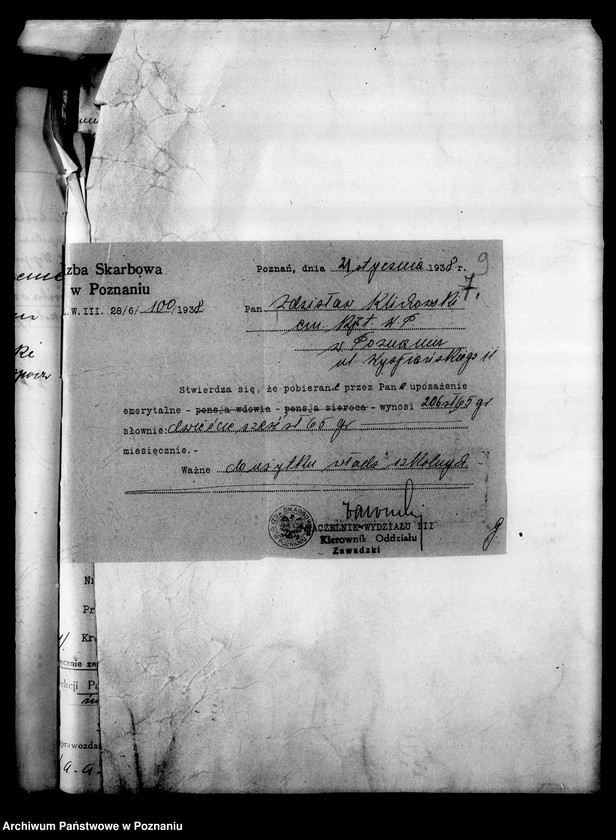 zba Skarbowa
w Poznaniu
W. III. 28/6/ 100/1938
Poznań, dnia 21 stycznia 1938 r.
9
7.
Pan Zdzisław Klichowski
em. kpt. W.P.
w Poznaniu
ul Wyspiańskiego 11
Stwierdza się, że pobierane przez Pana uposażenie
emerytalne - pensja wdowia - pensja sieroca - wynosi 206 zł 65 gr
słownie: dwieście sześć zł 65 gr
miesięcznie.-
Ważne do użytku władz szkolnych
IZBA SKARBOWA W POZNANIU
NACZELNIK WYDZIAŁU III
Kierownik Oddziału
Zawadzki
Pr
Kr
ęcznie za
ekcji Pa
sprawozda
a.-a.
Archiwum Państwowe w Poznaniu